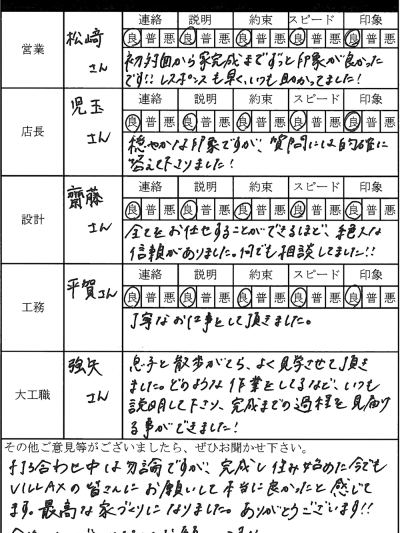 連絡 説明 約束 スピード 印象
営業 松崎さん
良 普 悪 良 普 悪 良 普 悪 良 普 悪 良 普 悪
初対面から家完成までずっと印象が良かった
です!! レスポンスも早く、いつも助かってました!
連絡 説明 約束 スピード 印象
店長 児玉さん
良 普 悪 良 普 悪 良 普 悪 良 普 悪 良 普 悪
穏やかな印象ですが、質問には的確に
答えて下さりました!
連絡 説明 約束 スピード 印象
設計 齋藤さん
良 普 悪 良 普 悪 良 普 悪 良 普 悪 良 普 悪
全てをお任せすることができるほど、絶大な
信頼がありました。何でも相談してました!!
連絡 説明 約束 スピード 印象
工務 平賀さん
良 普 悪 良 普 悪 良 普 悪 良 普 悪 良 普 悪
丁寧なお仕事をして頂きました。
大工職 強矢さん
息子と散歩がてら、よく見学させて頂き
ました。どのような作業をしてるなど、いつも
説明して下さり、完成までの過程を見届け
る事ができました!
その他ご意見等がございましたら、ぜひお聞かせ下さい。
打ち合わせ中は勿論ですが、完成し住み始めた今でも
VILLAXの皆さんにお願いして本当に良かったと感じて
ます。最高な家づくりになりました。ありがとうございます!!